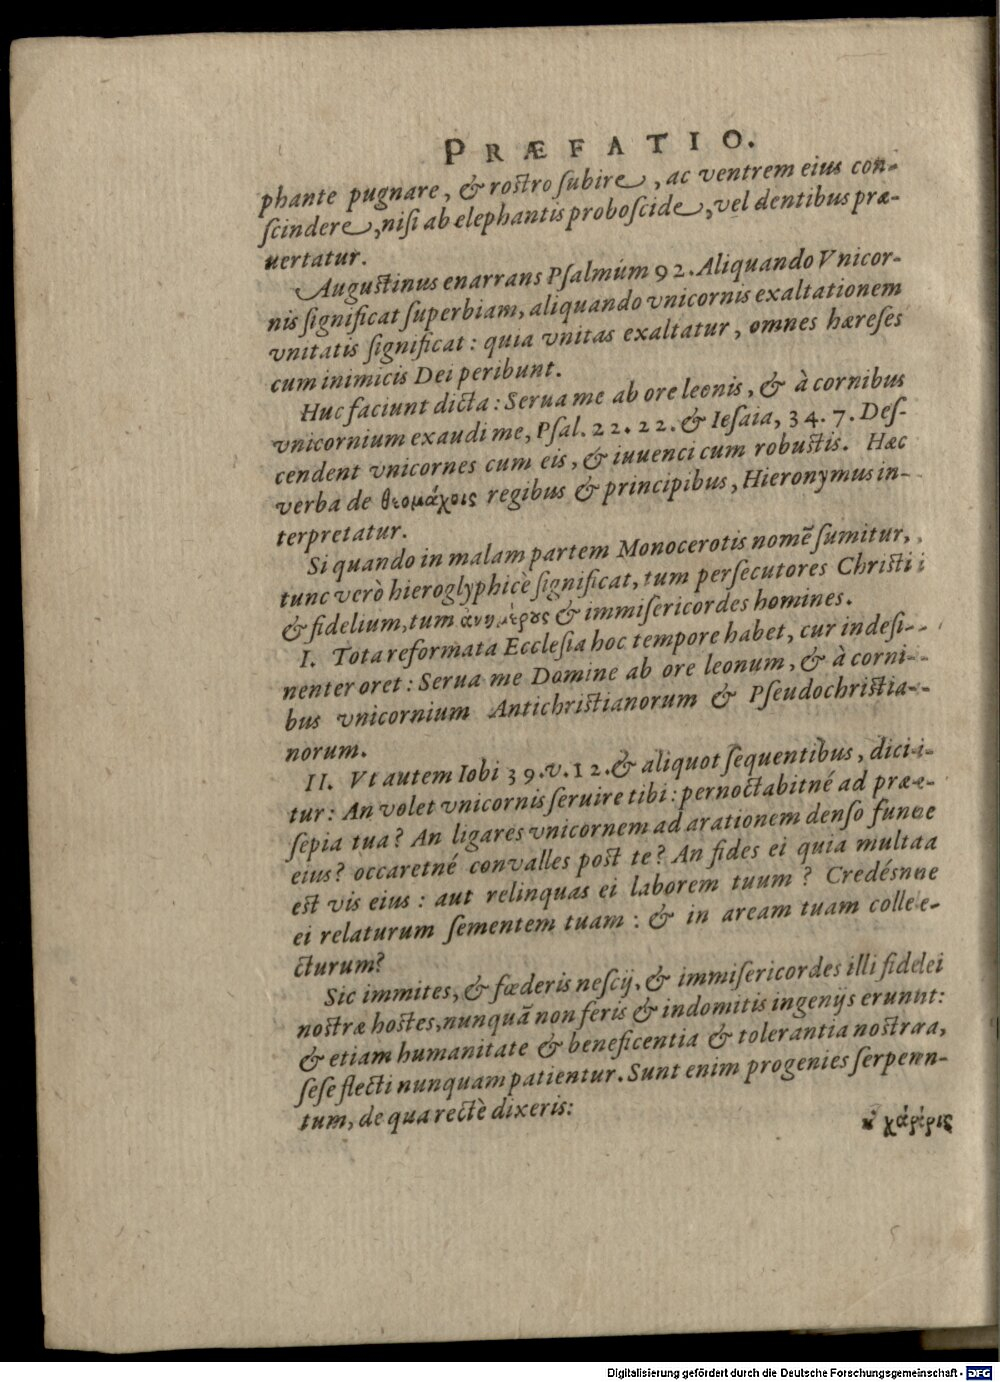 PRÆFATIO.
phante pugnare, & roſtro ſubire, ac ventrem eius con-
ſcindere, niſi ab elephantis proboſcide, vel dentibus præ-
uertatur.
Auguſtinus enarrans Pſalmum 92. Aliquando Vnicor-
nis ſignificat ſuperbiam, aliquando vnicornis exaltationem
vnitatis ſignificat: quia vnitas exaltatur, omnes hæreſes
cum inimicis Dei peribunt.
Huc faciunt dicta: Serua me ab ore leonis, & à cornibus
vnicornium exaudi me, Pſal. 22. 22. & Ieſaia, 34. 7. Deſ-
cendent vnicornes cum eis, & iuuenci cum robuſtis. Hæc
verba de θεομάχοις regibus & principibus, Hieronymus in-
terpretatur.
Si quando in malam partem Monocerotis nomẽ ſumitur,
tunc verò hieroglyphicè ſignificat, tum perſecutores Chriſti
& fidelium, tum ἀνημέρους & immiſericordes homines.
I. Tota reformata Eccleſia hoc tempore habet, cur indeſi-
nenter oret: Serua me Domine ab ore leonum, & à corni-
bus vnicornium Antichriſtianorum & Pſeudochriſtia-
norum.
II. Vt autem Iobi 39. v. 12. & aliquot ſequentibus, dici-
tur: An volet vnicornis ſeruire tibi: pernoctabitné ad præ-
ſepia tua? An ligares vnicornem ad arationem denſo fune
eius? occaretné convalles poſt te? An fides ei quia multa
eſt vis eius: aut relinquas ei laborem tuum? Credésne
ei relaturum ſementem tuam: & in aream tuam colle-
cturum?
Sic immites, & fœderis neſcij, & immiſericordes illi fidei
noſtræ hoſtes, nunquã non feris & indomitis ingenijs erunt:
& etiam humanitate & beneficentia & tolerantia noſtra,
ſeſe flecti nunquam patientur. Sunt enim progenies ſerpen-
tum, de qua rectè dixeris:
χάρις
Digitalisierung gefördert durch die Deutsche Forschungsgemeinschaft - DFG